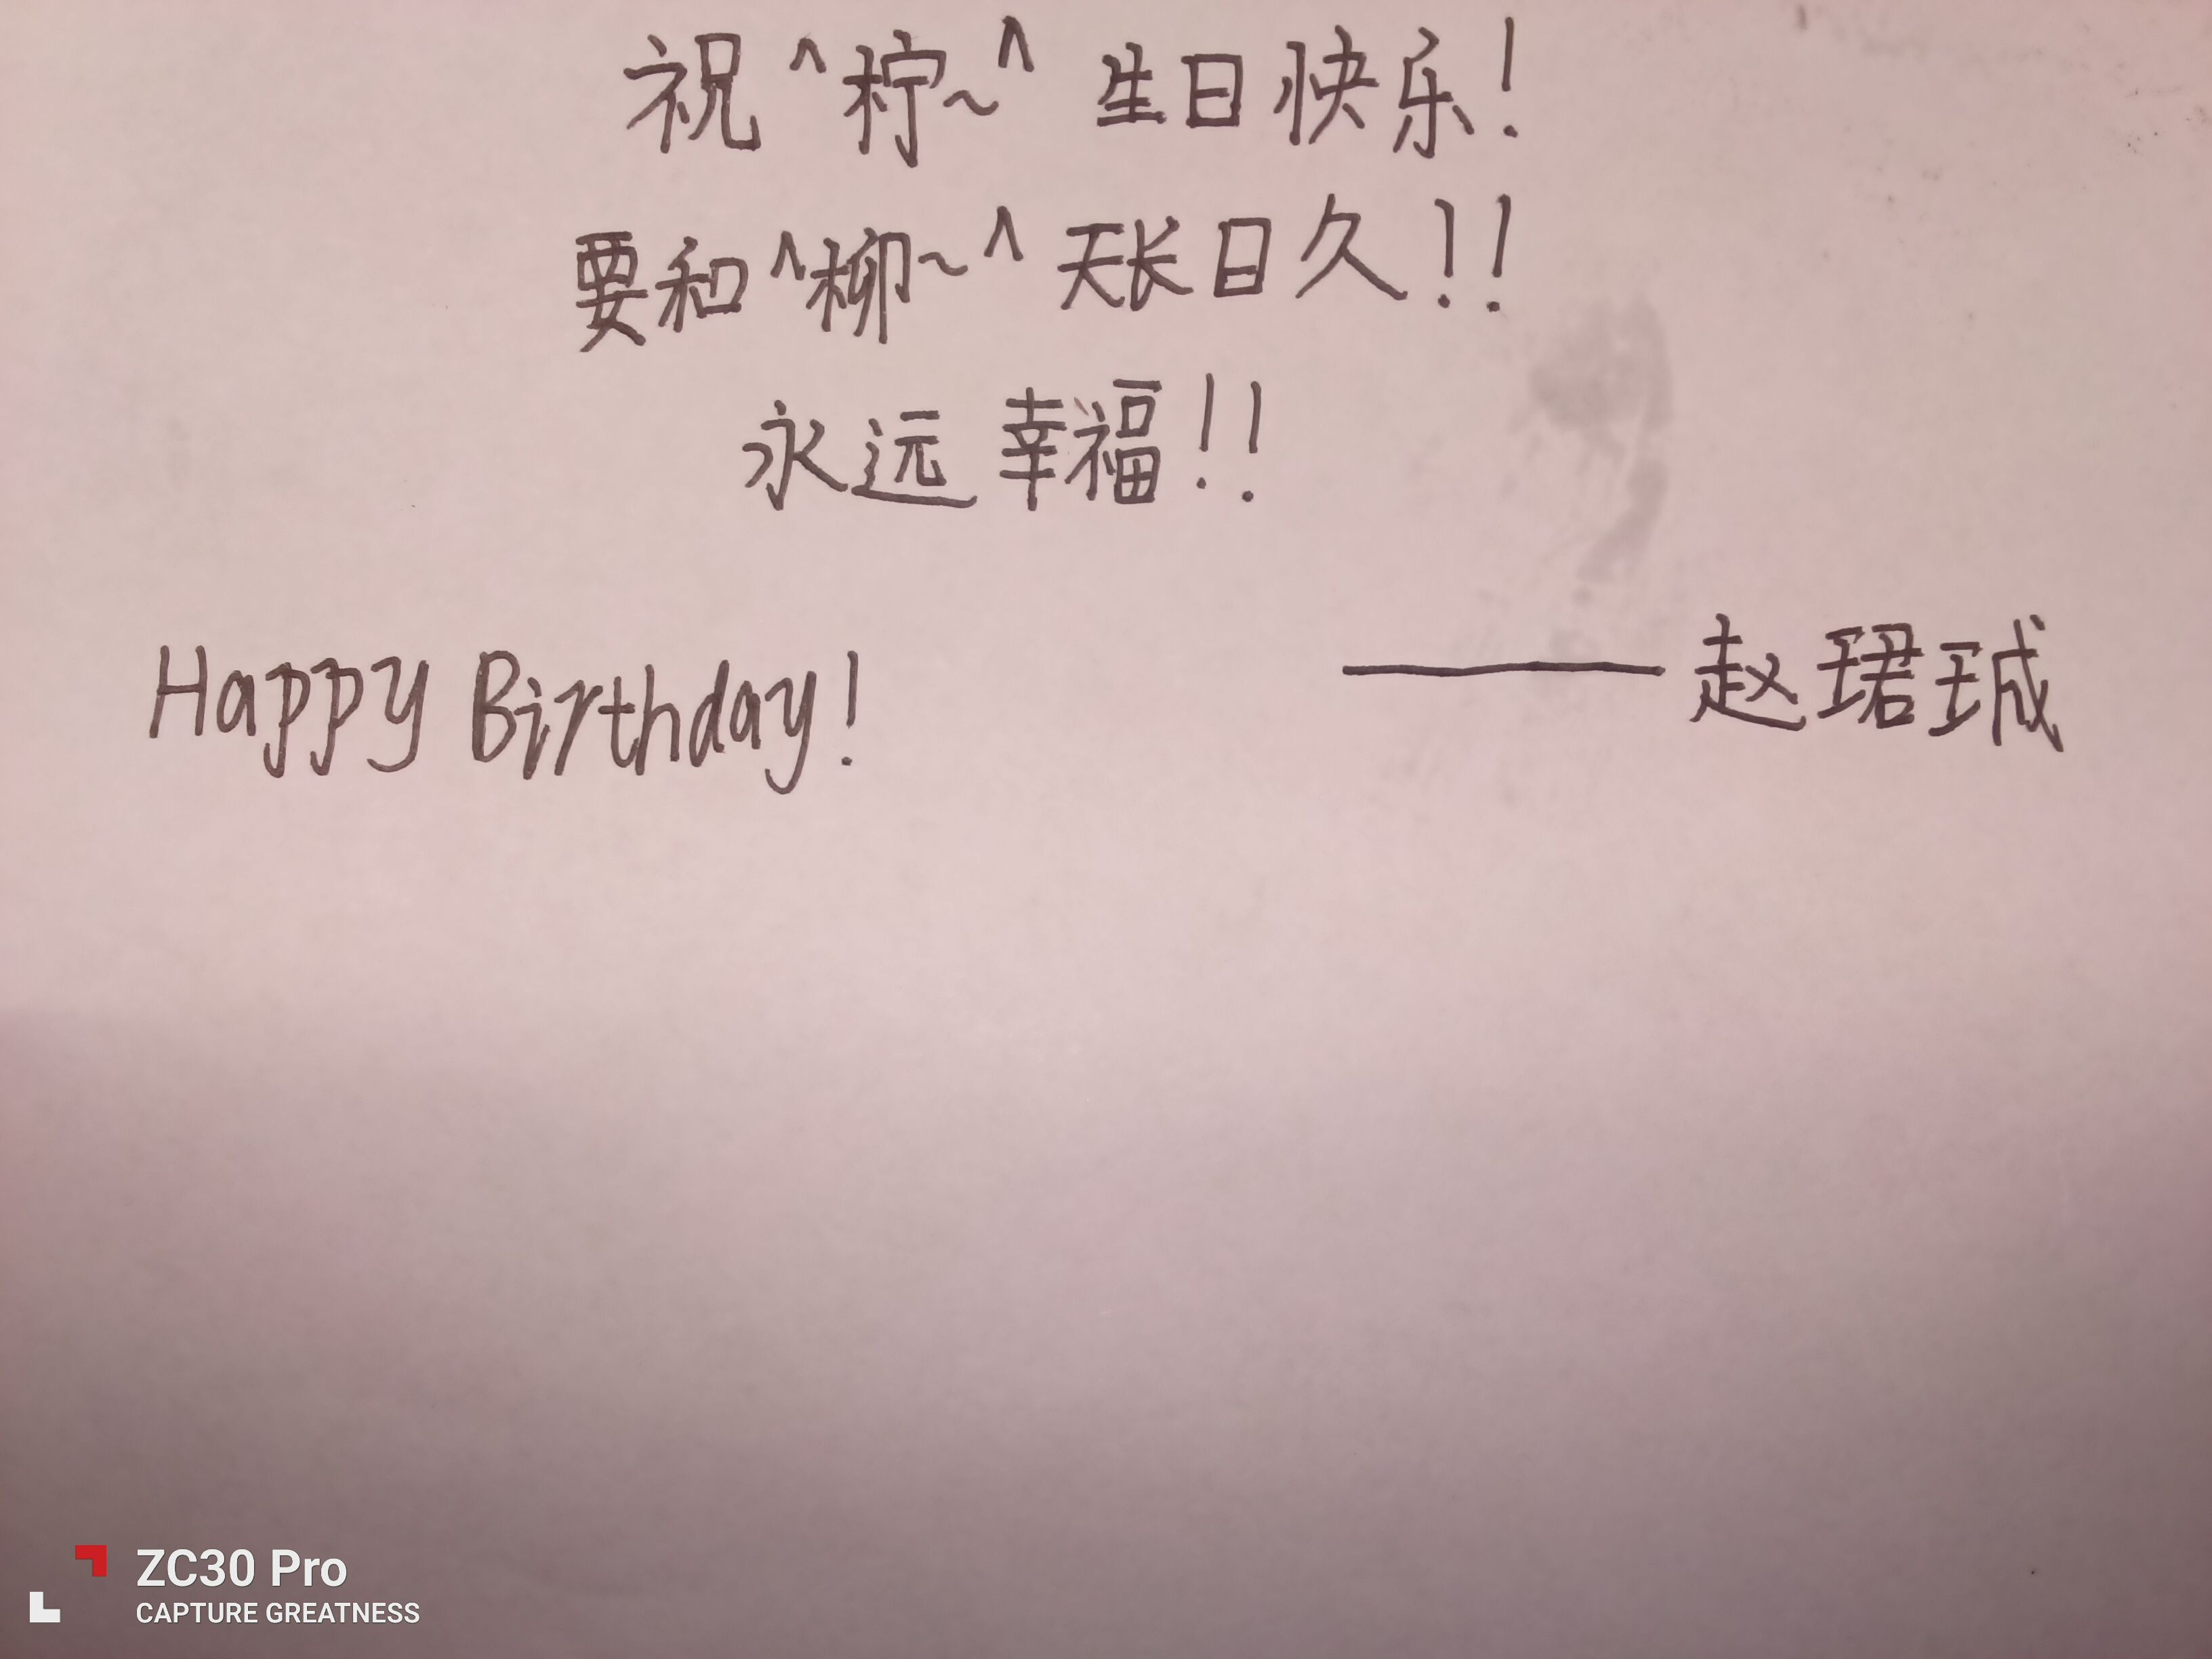 祝^柠~^ 生日快乐!
要和^柳~^ 天长日久!!
永远 幸福!!
Happy Birthday!
——赵珺珹
ZC30 Pro
CAPTURE GREATNESS